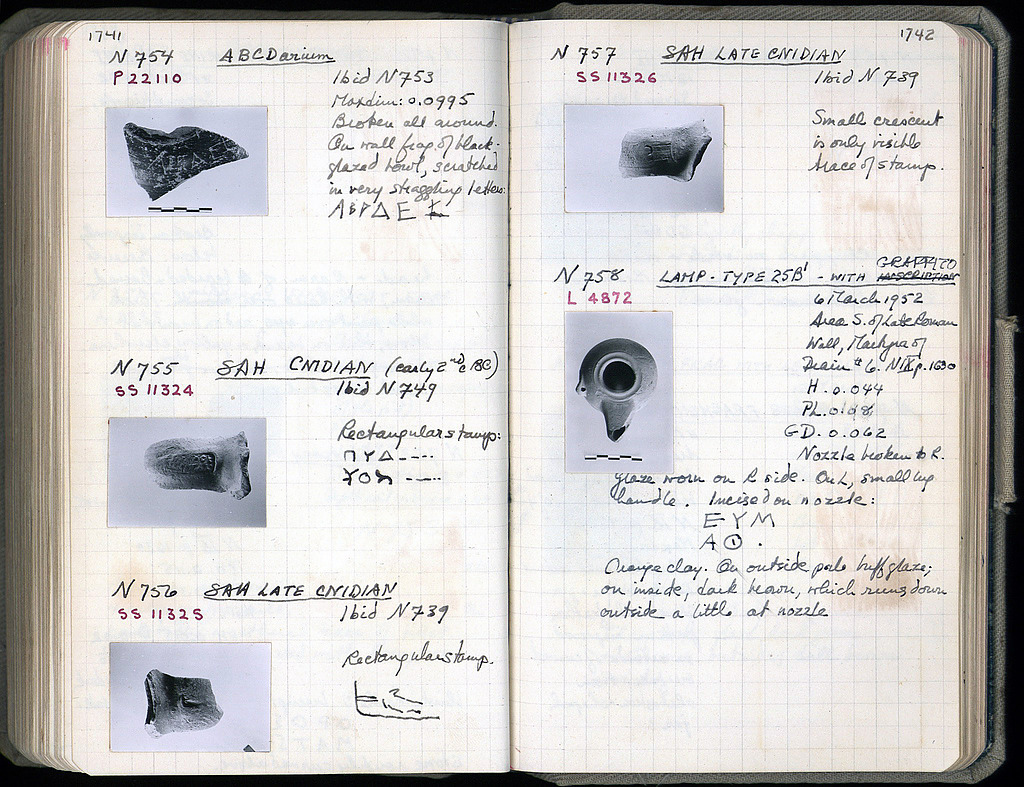 1741
N 754 ABCDarium
P 22110 Ibid N 753
Maxdim: 0.0995
Broken all around.
On wall frag. of black-
glazed bowl, scratched
in very straggling letters:
ΑΒΓΔΕ
N 755 SAH CNIDIAN (early 2nd c BC)
SS 11324 Ibid N 749
Rectangular stamp:
ΠΥΔ----
N 756 SAH LATE CNIDIAN
SS 11325 Ibid N 739
Rectangular stamp.
1742
N 757 SAH LATE CNIDIAN
SS 11326 Ibid N 739
Small crescent
is only visible
trace of stamp.
GRAFFITO
N 758 LAMP - TYPE 25B' - WITH INSCRIPTION
L 4872 6 March 1952
Area S. of Late Roman
Wall, Makyra of
Drain #6. NIX p. 1630
H. 0.044
PL.
GD. 0.062
Nozzle broken to R.
glaze worn on R side. On L, small lug
handle. Incised on nozzle:
ΕΥΜ
Α
Orange clay. On outside pale buff glaze;
on inside, dark brown, which runs down
outside a little at nozzle